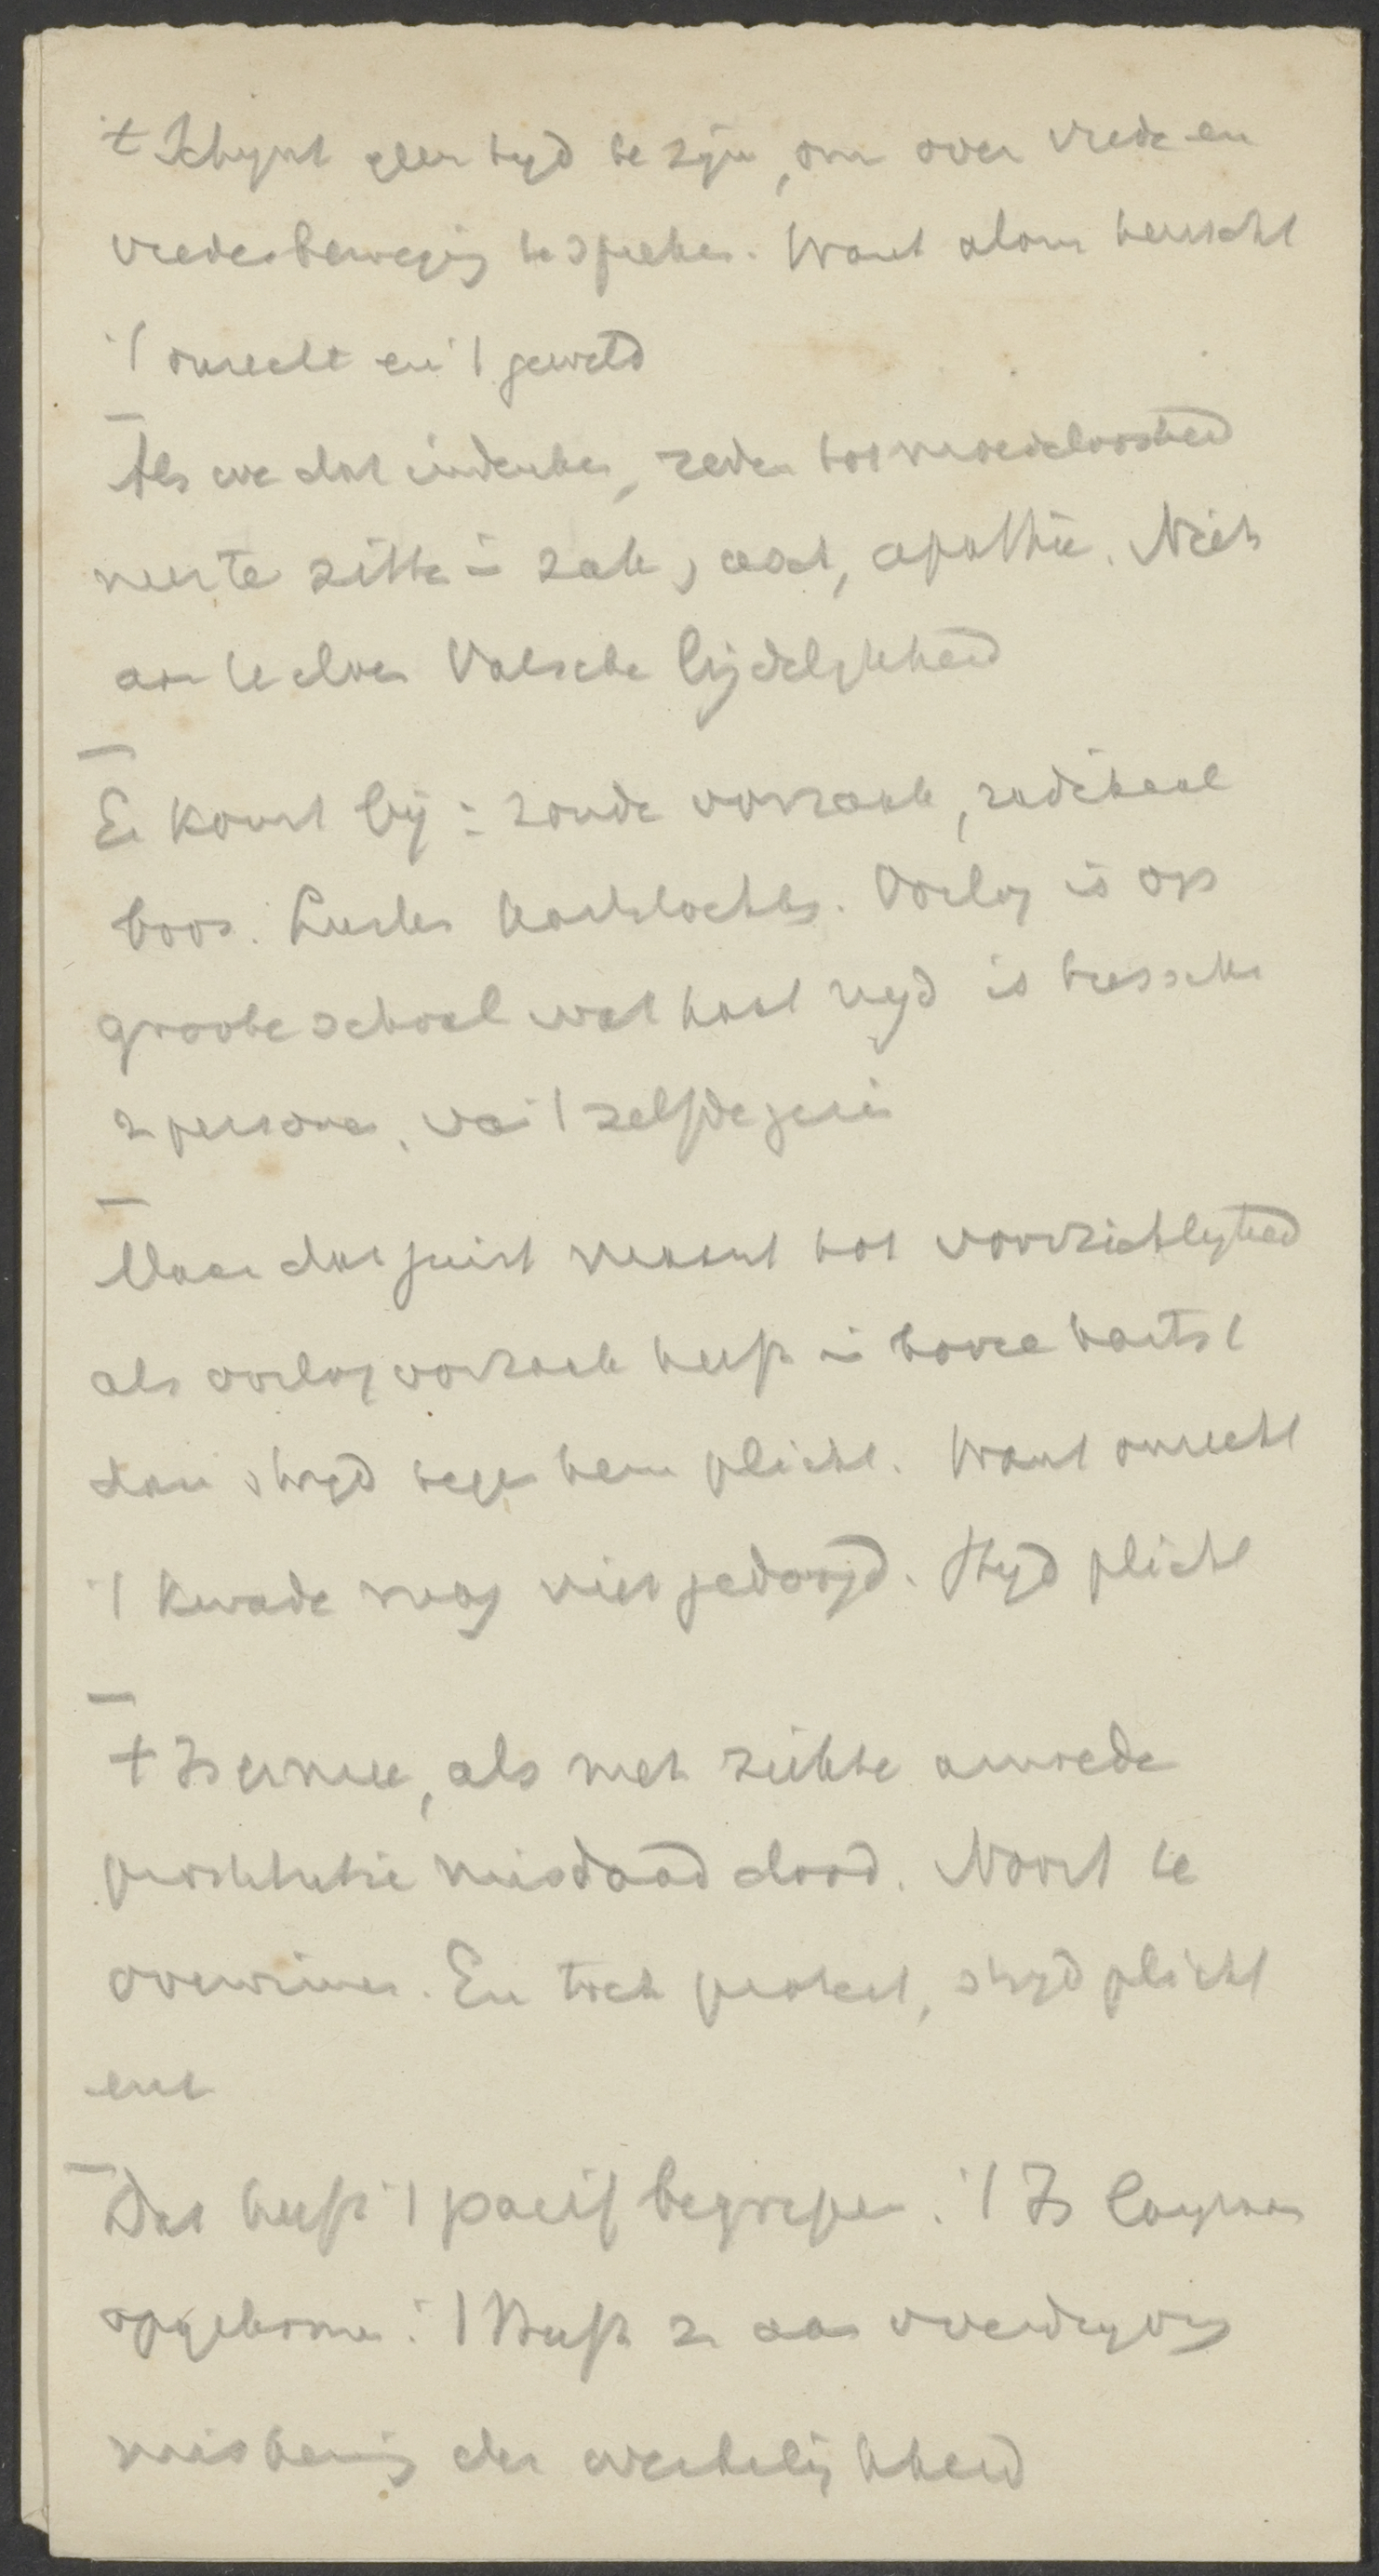 't Schynt geen tyd te zijn, om over vrede en
vredesbeweging te spreken. Want alom heerscht
't onrecht en 't geweld
Als we dat indenken, reden tot moedeloosheid
meeste zitten in zak, asch, apathie. Niets
aan te doen Valsche lijdelykheid
Er komt bij: zonde oorzaak, radikaal
boos. Lusten hartstochten. Oorlog is op
groote schaal wat haat nyd is tusschen
2 personen, van 't zelfde genus
Maar dat juist maant tot voorzichtigheid
als oorlog oorzaak heeft in booze hart
dan stryd tegen hem plicht. Want onrecht
't Kwade mag niet gedoogd. Stryd plicht
't Is ermee, als met ziekte armoede
prostitutie misdaad dood. Nooit te
overwinnen. En toch protest, stryd plicht
enz
Dat heeft 't pacif begrepen. 't Is
opgekomen. 't Heeft z aan overdryving
miskenning der werkelijkheid